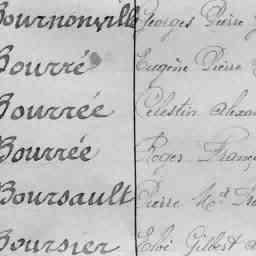 Bournonville Georges Pierre
Bourré Eugène Pierre
Bourrée Célestin Alexan
Bourrée Roger Franç
Boursault Pierre M
Boursier Eloi Gilbert